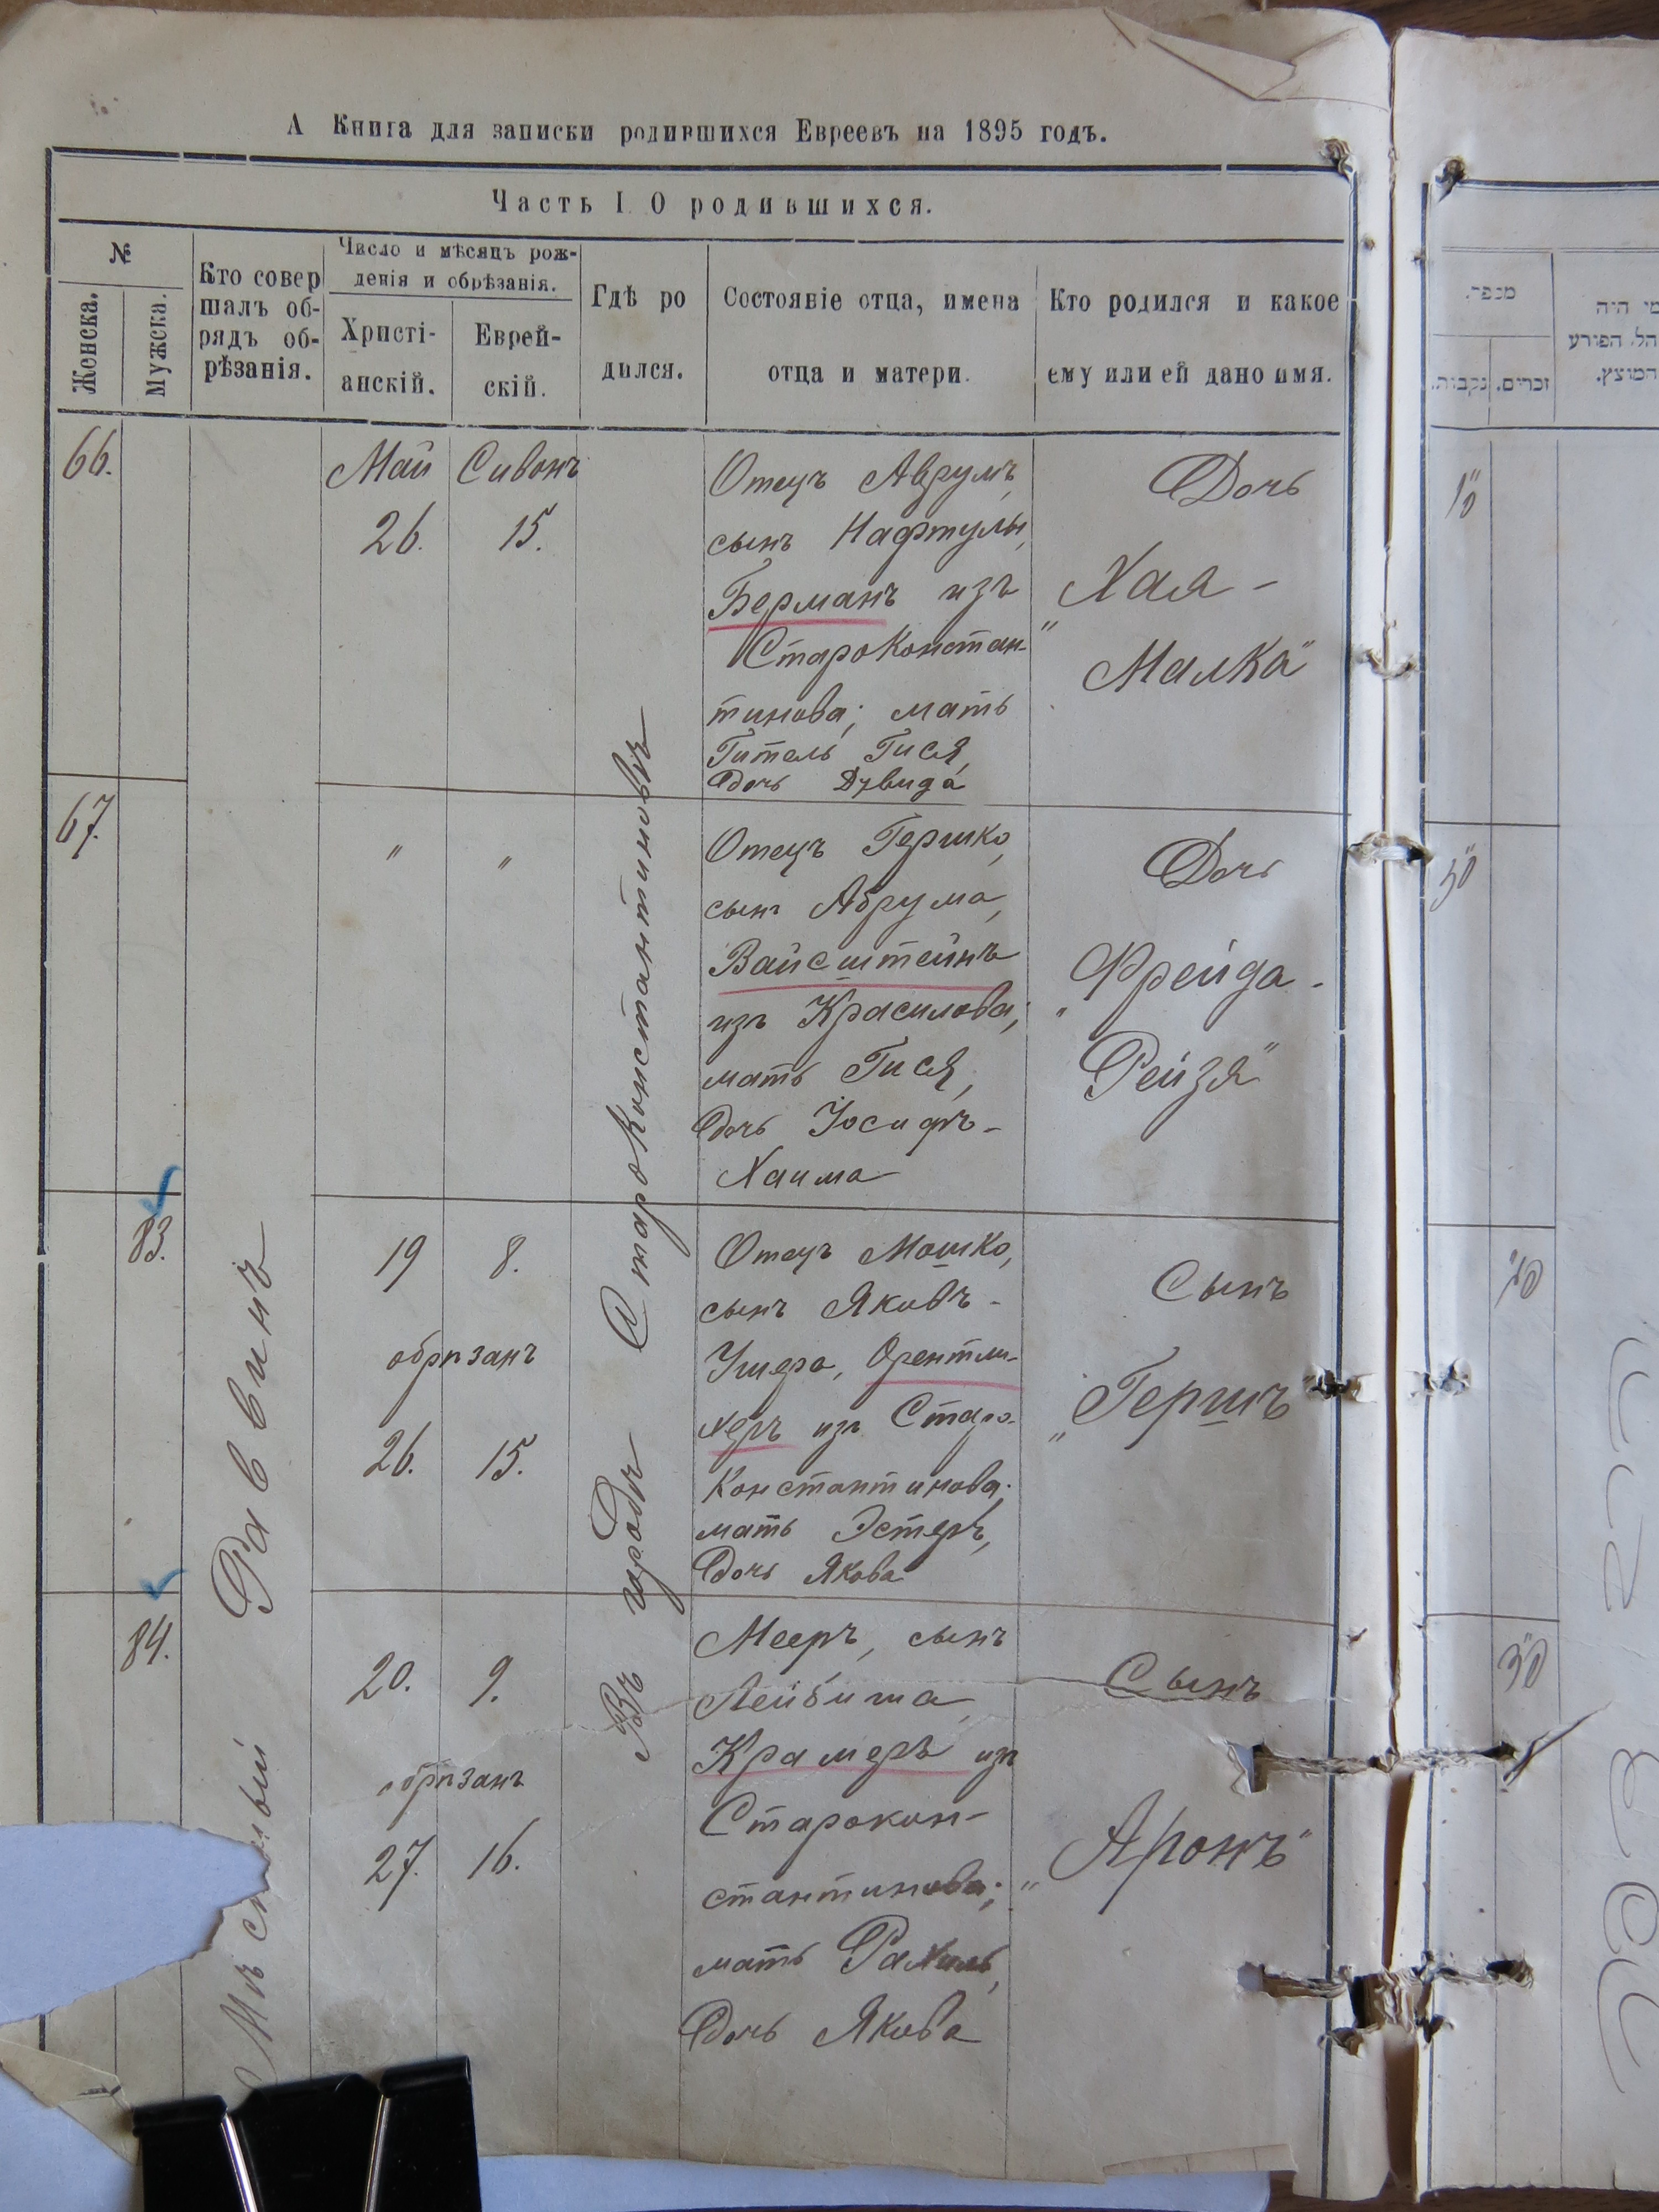 А Книга для записки родившихся Евреевъ на 1895 годъ.
Часть I О родившихся.
№
Женска.
Мужска.
Кто совер
шалъ об-
рядъ об-
рѣзанія.
Число и мѣсяцъ рож-
денія и обрѣзанія.
Христі-
анскій.
Еврей-
скій.
Гдѣ ро
дился.
Состояніе отца, имена
отца и матери.
Кто родился и какое
ему или ей дано имя.
מספר.
נקבות.
זכרים.
מי היה
הל, הפורע
המוצץ.
Раввинъ
Въ городѣ Староконстантиновѣ
66.
Май
26.
Сивонъ
15.
Отецъ Аврумъ,
сынъ Нафтулы,
Берманъ изъ
Староконстан-
тинова; мать
Гитель Гися,
дочь Дувида
Дочь
„Хая-
Малка"
67.
"
"
Отецъ Гершко,
сынъ Абрума,
Вайсштейнъ
изъ Красилова;
мать Гися,
дочь Іосифъ-
Хаима
Дочь
„Фрейда-
Рейзя"
83.
19
8.
обрѣзанъ
26.
15.
Отецъ Мошко,
сынъ Яковъ-
Ушера, Орентли-
херъ изъ Старо-
константинова;
мать Эстеръ,
дочь Якова
Сынъ
„Гершъ"
84.
20.
9.
обрѣзанъ
27.
16.
Мееръ, сынъ
Лейбиша,
Крамеръ изъ
Старокон-
стантинова;
мать Рахиль,
дочь Якова
Сынъ
„Аронъ"